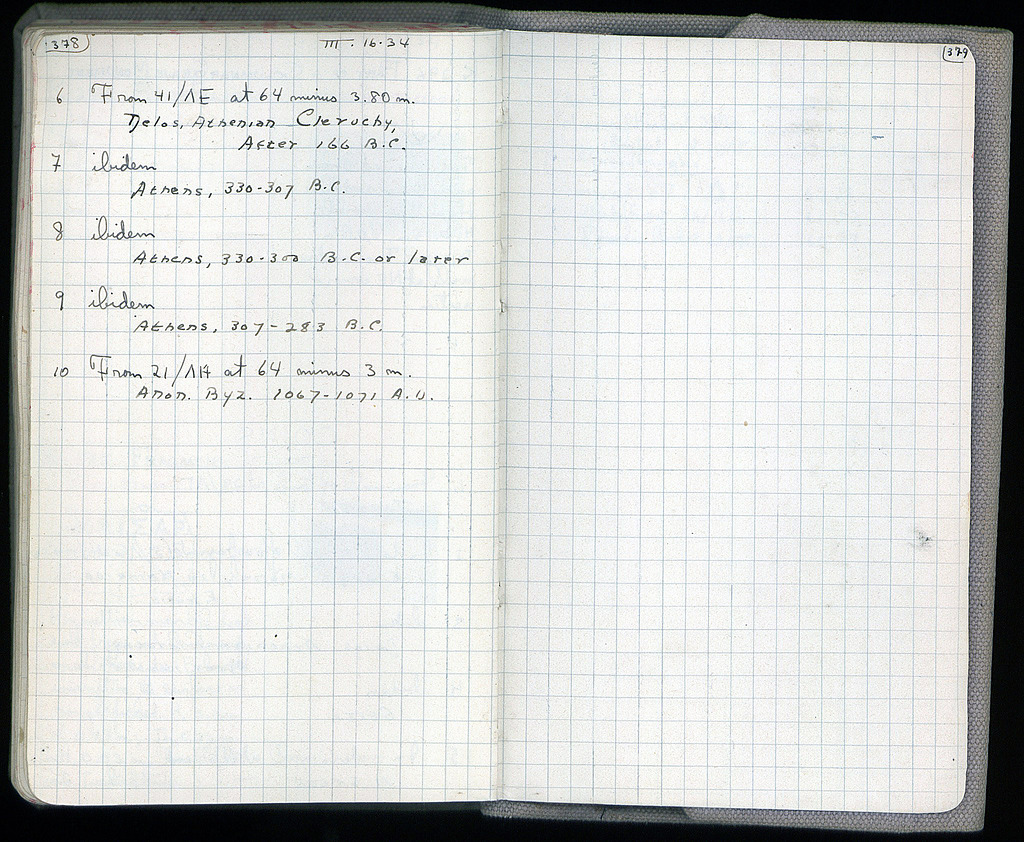 378
III. 16.34
6 From 41/ΛE at 64 minus 3.80 m.
Delos, Athenian Cleruchy,
After 166 B.C.
7 ibidem
Athens, 330-307 B.C.
8 ibidem
Athens, 330-300 B.C. or later
9 ibidem
Athens, 307-283 B.C.
10 From 21/ΛΗ at 64 minus 3 m.
Anon. Byz. 1067-1071 A.D.
379